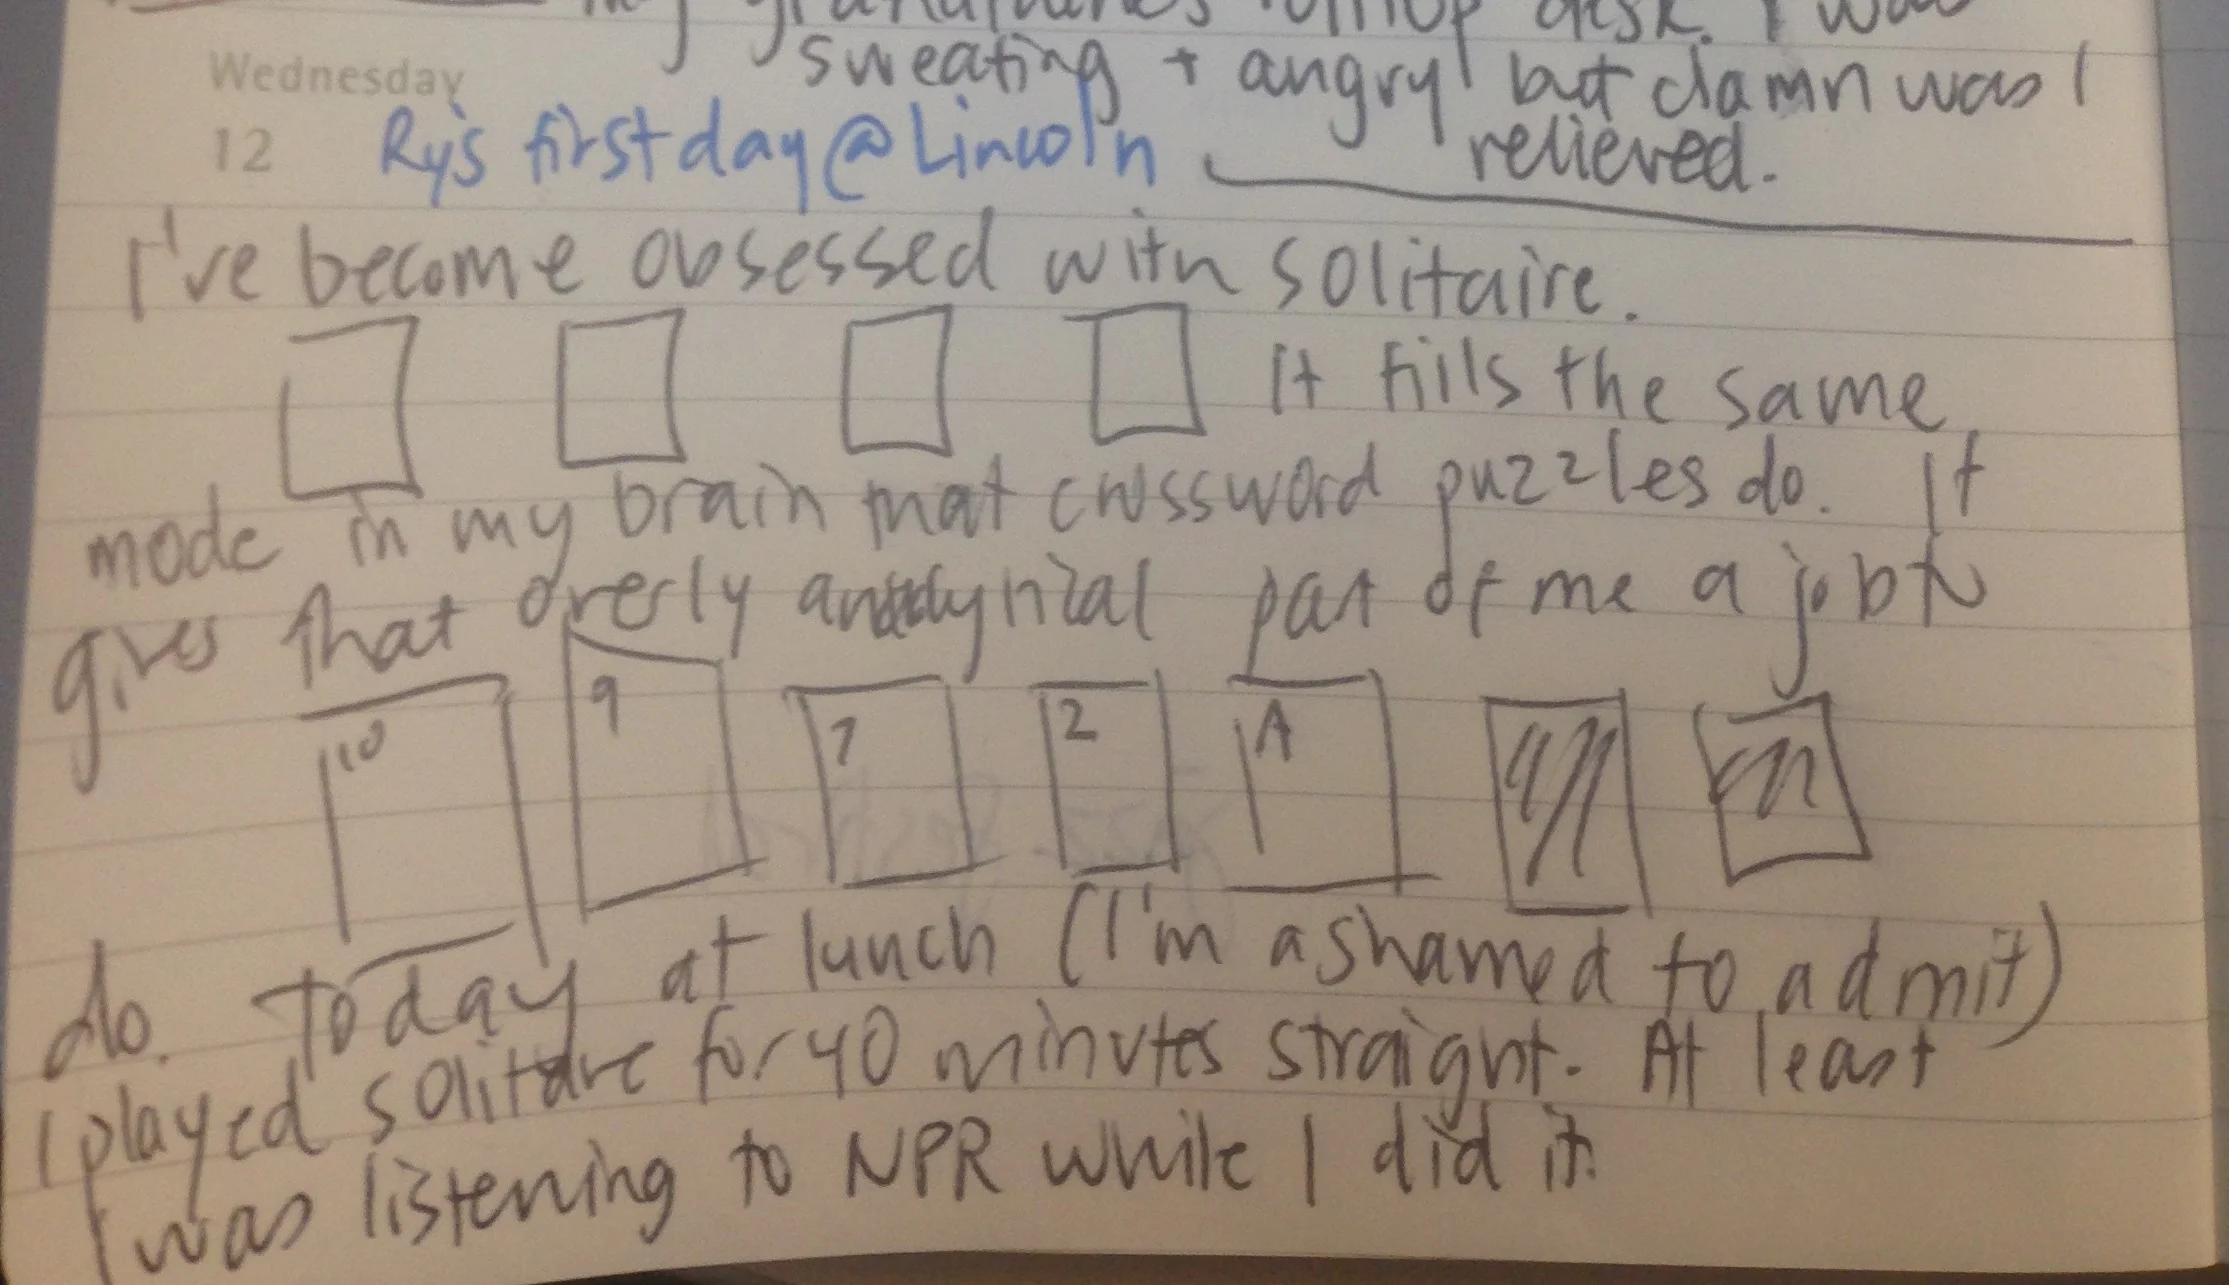 my grandfather's rolltop desk. I was
sweating + angry but damn was I
relieved.
Wednesday
12
Ry's first day @ Lincoln
I've become obsessed with solitaire.
It fills the same
mode in my brain that crossword puzzles do. It
gives that overly analytical part of me a job to
10 9 7 2 A
do. Today at lunch (I'm ashamed to admit)
I played solitaire for 40 minutes straight. At least
I was listening to NPR while I did it.